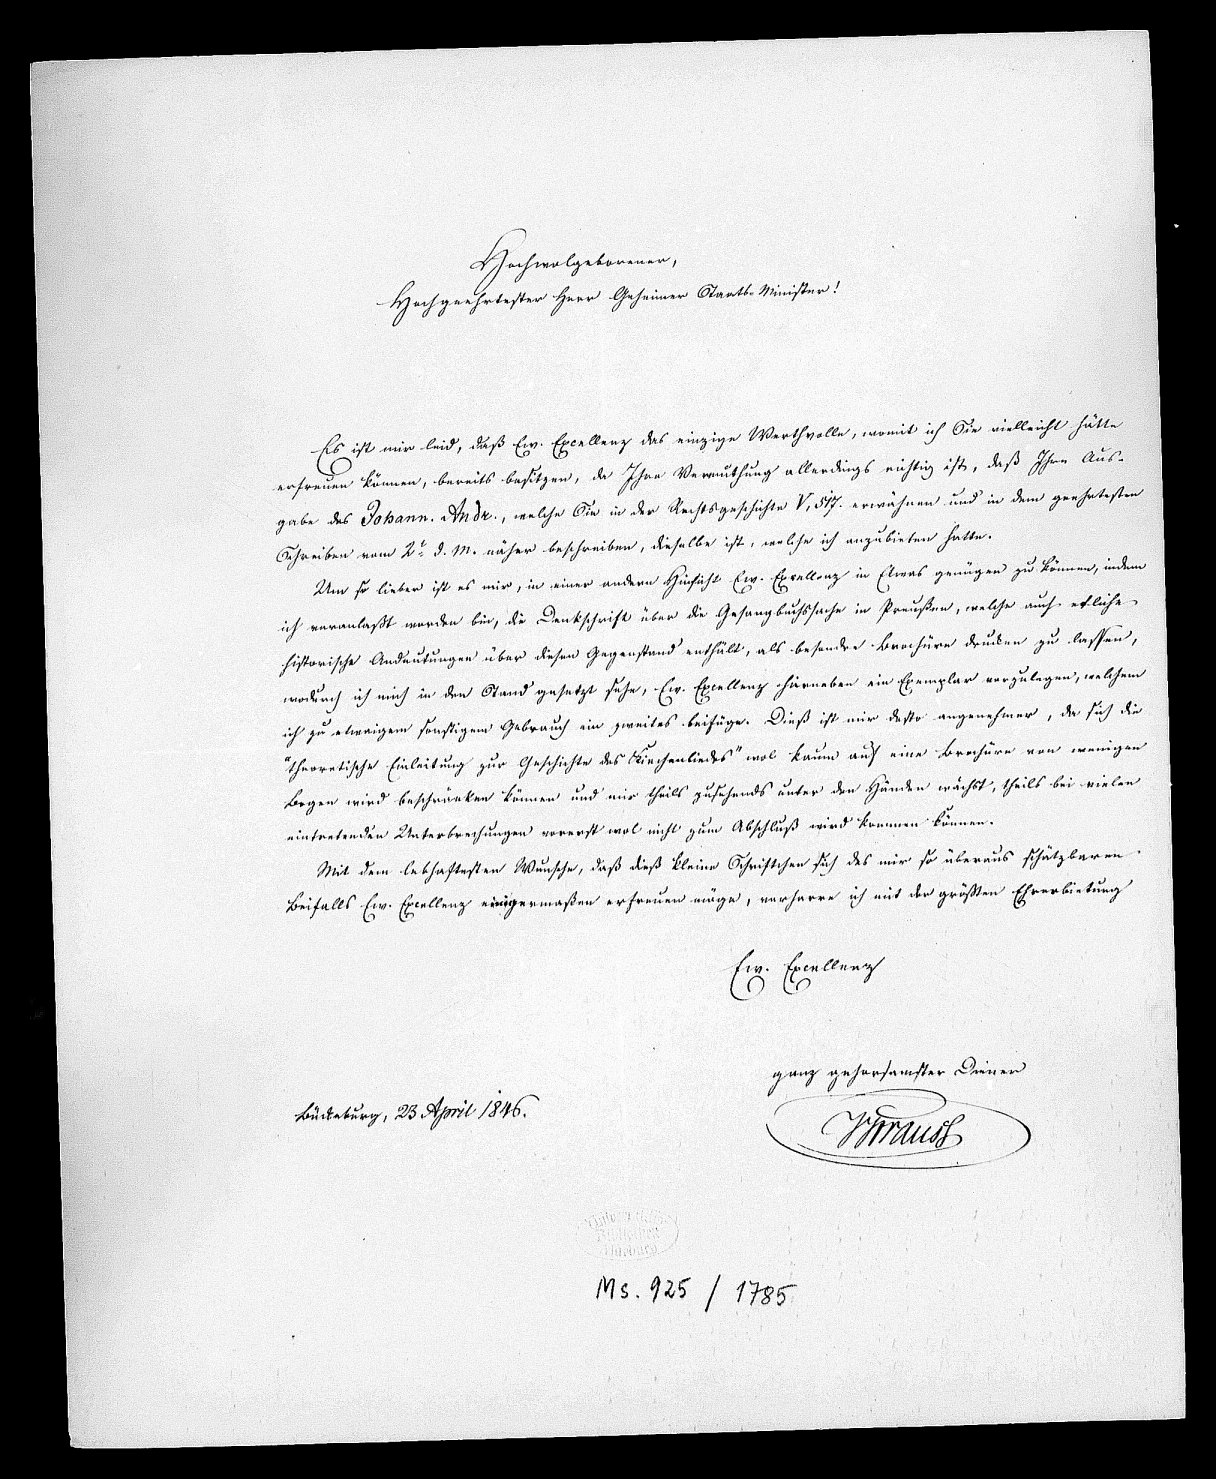 Hochwolgeborener,
Hochgeehrtester Herr Geheimer Staats-Minister!
Es ist mir leid, daß Ew. Excellenz das einzige Werthvolle, womit ich Sie vielleicht hätte
erfreuen können, bereits besitzen, da Ihre Vermuthung allerdings richtig ist, daß Ihre Aus-
gabe des Johann. Andr., welche Sie in der Rechtsgeschichte V, 517. erwähnen und in dem geehrtesten
Schreiben vom 2t. d. M. näher beschreiben, dieselbe ist, welche ich anzubieten hatte.
Um so lieber ist es mir, in einer andern Hinsicht Ew. Excellenz in Etwas genügen zu können, indem
ich veranlaßt worden bin, die Denkschrift über die Gesangbuchssache in Preußen, welche auch etliche
historische Andeutungen über diesen Gegenstand enthält, als besondre Brochüre drucken zu lassen,
wodurch ich mich in den Stand gesetzt sehe, Ew. Excellenz hierneben ein Exemplar vorzulegen, welchem
ich zu etwaigem sonstigem Gebrauch ein zweites beifüge. Dieß ist mir desto angenehmer, da sich die
"theoretische Einleitung zur Geschichte des Kirchenliedes" wol kaum auf eine Brochüre von wenigen
Bogen wird beschränken können und mir theils zusehends unter den Händen wächst, theils bei vielen
eintretenden Unterbrechungen vorerst wol nicht zum Abschluß wird kommen können.
Mit dem lebhaftesten Wunsche, daß dieß kleine Schriftchen sich des mir so überaus schätzbaren
Beifalls Ew. Excellenz einigermaßen erfreuen möge, verharre ich mit der größten Ehrerbietung
Ew. Excellenz
ganz gehorsamster Diener
Bückeburg, 23 April 1846.
Strauß
Ms. 925 / 1785